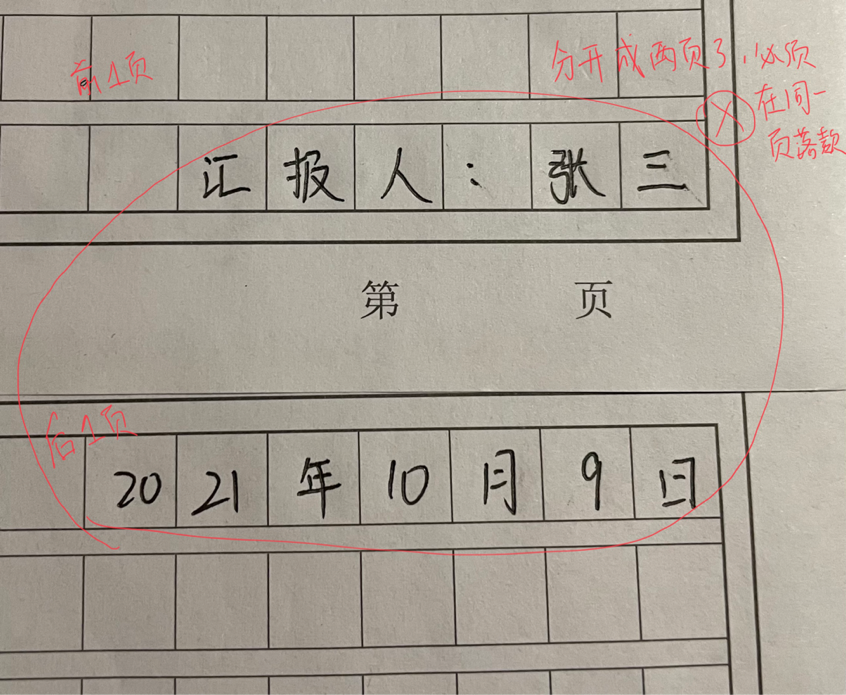 前1页
分开成两页了，必须
在同一
页落款
汇报人：张三
第 页
后1页
2021年10月9日